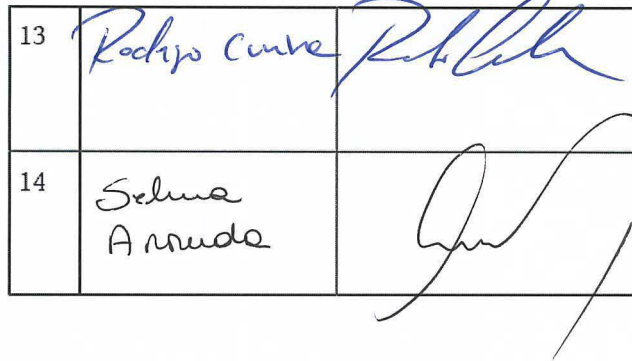 13 Rodrigo Cunha
14 Selma
Arruda